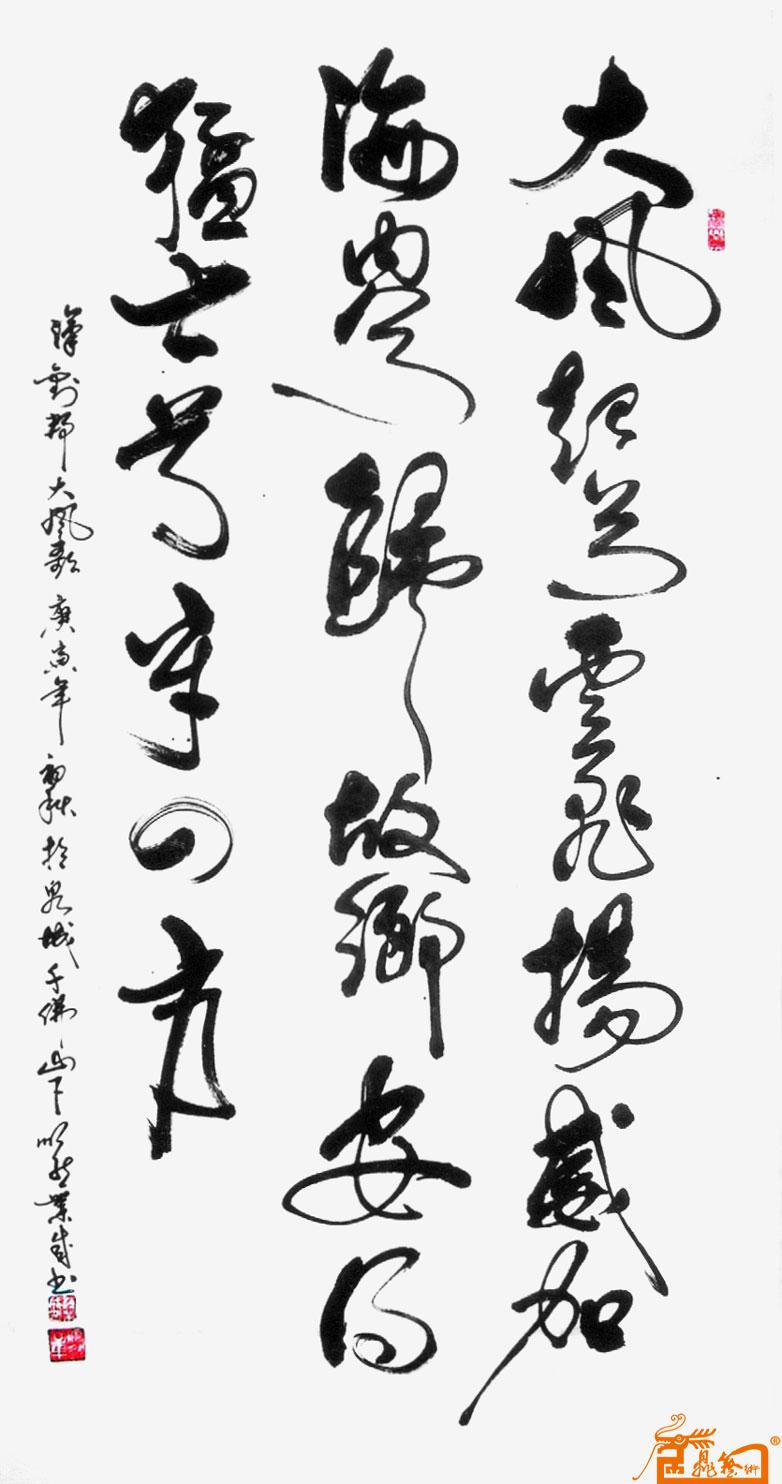 大風起兮雲飛揚威加
海内兮歸故鄉安得
猛士兮守四方
漢劉邦大風歌庚寅年初秋於泉城千佛山下業成书